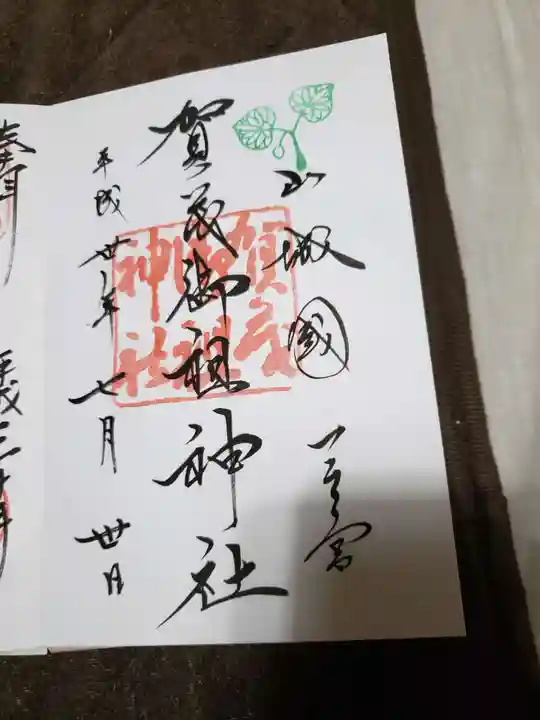 山城國 一之宮
賀茂御祖神社
平成卅年 七月 卅日
賀茂
御祖
神社
奉拝